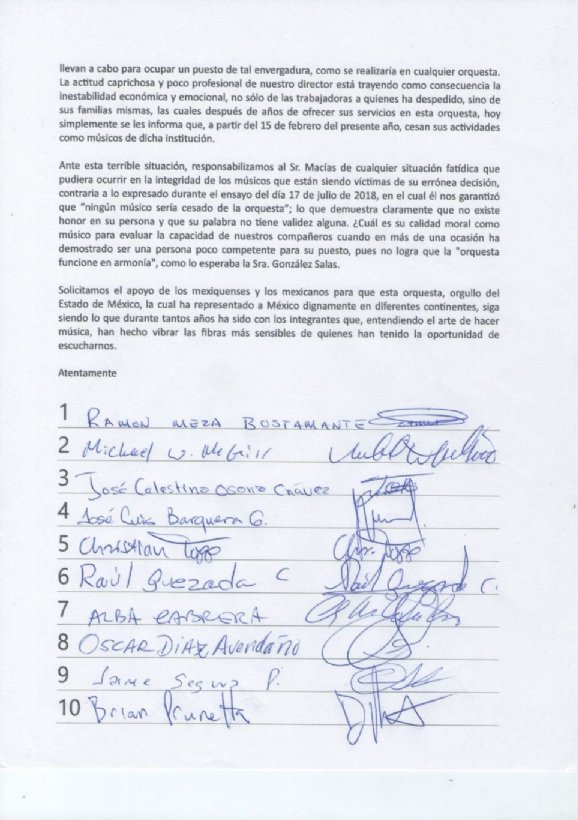 llevan a cabo para ocupar un puesto de tal envergadura, como se realizaría en cualquier orquesta.
La actitud caprichosa y poco profesional de nuestro director está trayendo como consecuencia la
inestabilidad económica y emocional, no sólo de las trabajadoras a quienes ha despedido, sino de
sus familias mismas, las cuales después de años de ofrecer sus servicios en esta orquesta, hoy
simplemente se les informa que, a partir del 15 de febrero del presente año, cesan sus actividades
como músicos de dicha institución.
Ante esta terrible situación, responsabilizamos al Sr. Macías de cualquier situación fatídica que
pudiera ocurrir en la integridad de los músicos que están siendo víctimas de su errónea decisión,
contraria a lo expresado durante el ensayo del día 17 de julio de 2018, en el cual él nos garantizó
que "ningún músico sería cesado de la orquesta"; lo que demuestra claramente que no existe
honor en su persona y que su palabra no tiene validez alguna. ¿Cuál es su calidad moral como
músico para evaluar la capacidad de nuestros compañeros cuando en más de una ocasión ha
demostrado ser una persona poco competente para su puesto, pues no logra que la "orquesta
funcione en armonía", como lo esperaba la Sra. González Salas.
Solicitamos el apoyo de los mexiquenses y los mexicanos para que esta orquesta, orgullo del
Estado de México, la cual ha representado a México dignamente en diferentes continentes, siga
siendo lo que durante tantos años ha sido con los integrantes que, entendiendo el arte de hacer
música, han hecho vibrar las fibras más sensibles de quienes han tenido la oportunidad de
escucharnos.
Atentamente
1 RAMON MEZA BUSTAMANTE
2 Michael W. McGirr
3 José Celestino Osorio Chávez
4 José Luis Barquera G.
5 Christian
6 Raúl Quezada C
7 ALBA CABRERA
8 OSCAR DIAZ Avendaño
9 Jaime Segura P.
10 Brian Prunetta